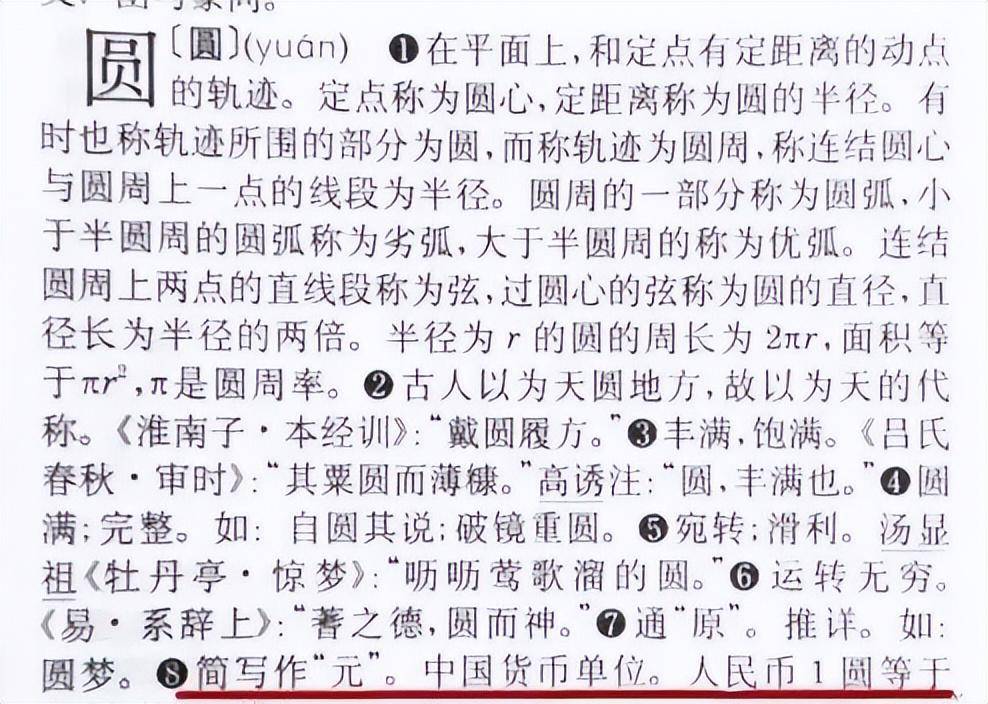 圆〔圓〕(yuán) ❶在平面上,和定点有定距离的动点
的轨迹。定点称为圆心,定距离称为圆的半径。有
时也称轨迹所围的部分为圆,而称轨迹为圆周,称连结圆心
与圆周上一点的线段为半径。圆周的一部分称为圆弧,小
于半圆周的圆弧称为劣弧,大于半圆周的称为优弧。连结
圆周上两点的直线段称为弦,过圆心的弦称为圆的直径,直
径长为半径的两倍。半径为 r 的圆的周长为 2πr,面积等
于πr²,π是圆周率。❷古人以为天圆地方,故以为天的代
称。《淮南子·本经训》:“戴圆履方。”❸丰满,饱满。《吕氏
春秋·审时》:“其粟圆而薄糠。”高诱注:“圆,丰满也。”❹圆
满;完整。如: 自圆其说;破镜重圆。❺宛转;滑利。汤显
祖《牡丹亭·惊梦》:“呖呖莺歌溜的圆。”❻运转无穷。
《易·系辞上》:“蓍之德,圆而神。”❼通“原”。推详。如:
圆梦。❽简写作“元”。中国货币单位。人民币 1 圆等于